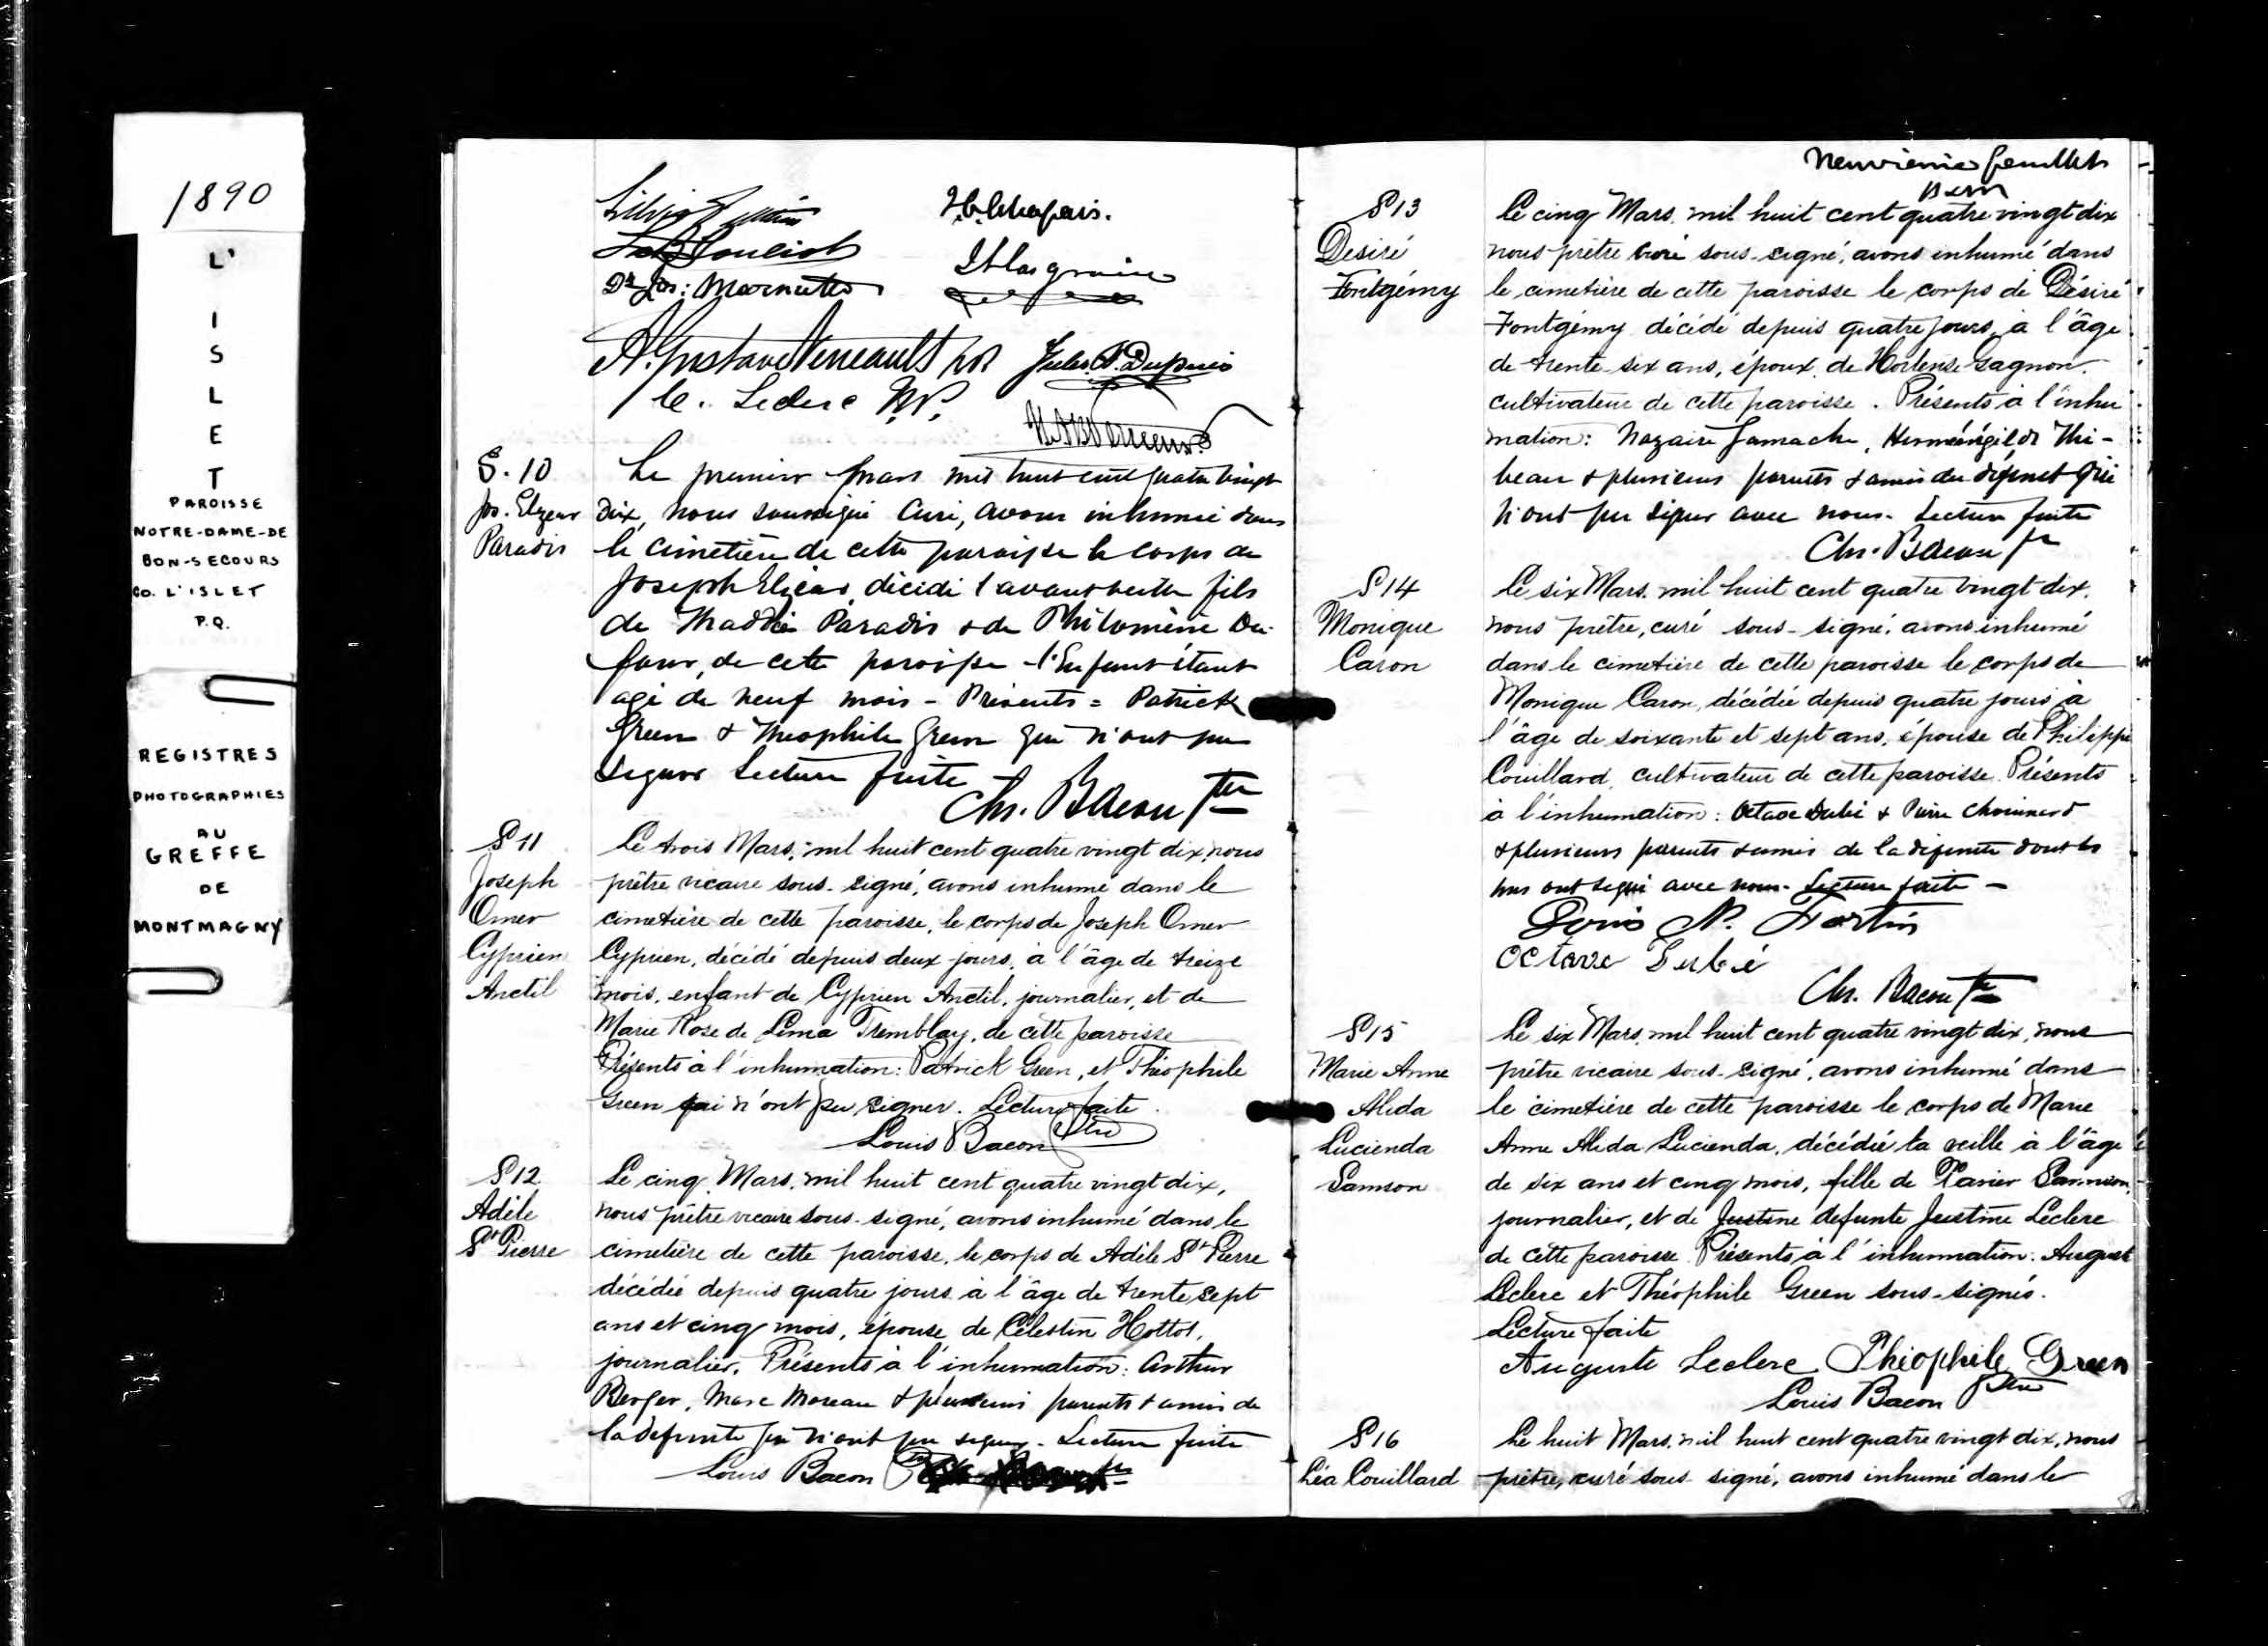 1890
L'
I
S
L
E
T
PAROISSE
NOTRE-DAME-DE
BON-SECOURS
CO. L'ISLET
P.Q.
REGISTRES
PHOTOGRAPHIES
AU
GREFFE
DE
MONTMAGNY
Dr Jos: Marmette
A. Gustave Verreault Jules A. Dupuis
C. Leclerc N.P.
S. 10
Jos. Elzear
Paradis
Le premier Mars mil huit cent quatre vingt
dix, nous soussigné Curé, avons inhumé dans
le cimetière de cette paroisse le corps de
Joseph Elzéar, décidé l'avant veille fils
de Thaddée Paradis & de Philomène Du-
four, de cette paroisse - l'Enfant étant
agé de neuf mois - Présents = Patrick
Green & Theophile Green qui n'ont pu
signer Lecture faite
Chs. Bacon Ptre
S 11
Joseph
Omer
Cyprien
Anctil
Le trois Mars, mil huit cent quatre vingt dix, nous
prêtre vicaire sous-signé, avons inhumé dans le
cimetière de cette paroisse, le corps de Joseph Omer
Cyprien, décédé depuis deux jours, à l'âge de treize
mois, enfant de Cyprien Anctil, journalier, et de
Marie Rose de Lima Tremblay, de cette paroisse
Présents à l'inhumation: Patrick Green, et Théophile
Green qui n'ont pu signer. Lecture faite.
Louis Bacon Ptre
S 12
Adèle
St Pierre
Le cinq Mars, mil huit cent quatre vingt dix,
nous prêtre vicaire sous-signé, avons inhumé dans le
cimetière de cette paroisse, le corps de Adèle St Pierre
décédée depuis quatre jours à l'âge de trente sept
ans et cinq mois, épouse de Célestin Hottot,
journalier. Présents à l'inhumation: Arthur
Berger, Marc Moreau & plusieurs parents & amis de
la defunte qui n'ont pu signer. Lecture faite
Louis Bacon Ptre
Neuvième feuillet
S 13
Desiré
Fontgémy
Le cinq Mars, mil huit cent quatre vingt dix
nous prêtre curé sous-signé, avons inhumé dans
le cimetière de cette paroisse le corps de Désiré
Fontgémy décédé depuis quatre jours, à l'âge
de trente six ans, époux de Hortense Gagnon.
cultivateur de cette paroisse. Présents à l'inhu
mation: Nazaire Gamache, Herménégilde Thi-
beau & plusieurs parents & amis du défunt qui
n'ont pu signer avec nous. Lecture faite
Chs. Bacon Ptre
S 14
Monique
Caron
Le six Mars, mil huit cent quatre vingt dix,
nous prêtre, curé sous-signé, avons inhumé
dans le cimetière de cette paroisse le corps de
Monique Caron, décédée depuis quatre jours à
l'âge de soixante et sept ans, épouse de Philippe
Couillard, cultivateur de cette paroisse. Présents
à l'inhumation: Octave Dubé & Pierre Chouinard
& plusieurs parents & amis de la défunte dont les
uns ont signé avec nous. Lecture faite -
Louis N. Fortin
Octave Dubé
Chs. Bacon Ptre
S 15
Marie Anne
Alida
Lucienda
Samson
Le six Mars, mil huit cent quatre vingt dix, nous
prêtre vicaire sous-signé, avons inhumé dans
le cimetière de cette paroisse le corps de Marie
Anne Alida Lucienda, décédée la veille à l'âge
de six ans et cinq mois, fille de Xavier Samson,
journalier, et de Justine défunte Justine Leclerc
de cette paroisse. Présents à l'inhumation: August
Leclerc et Théophile Green sous-signés.
Lecture faite
Auguste Leclerc Théophile Green
Louis Bacon Ptre
S 16
Léa Couillard
Le huit Mars, mil huit cent quatre vingt dix, nous
prêtre, curé sous signé, avons inhumé dans le